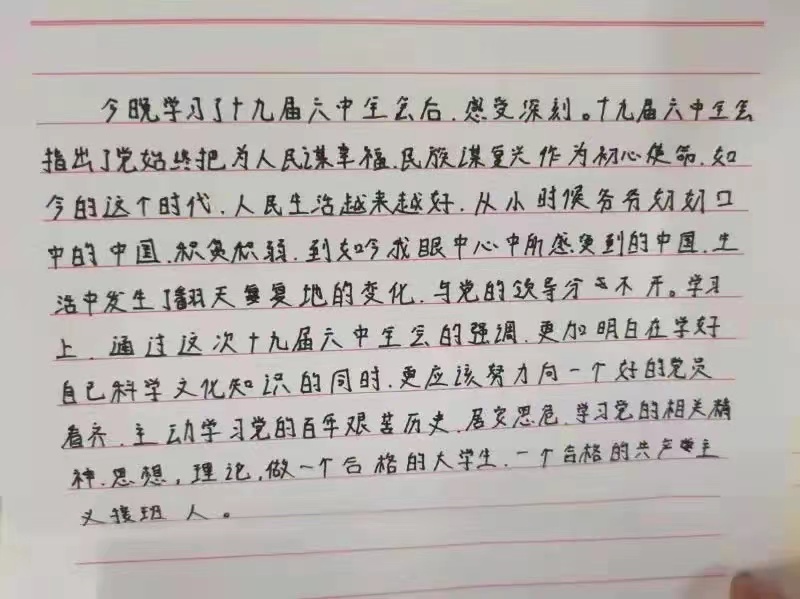 今晚学习了十九届六中全会后,感受深刻。十九届六中全会
指出了党始终把为人民谋幸福,民族谋复兴作为初心使命,如
今的这个时代,人民生活越来越好,从小时候爷爷奶奶口
中的中国,积贫积弱,到如今我眼中心中所感受到的中国,生
活中发生了翻天覆地的变化,与党的领导分不开。学习
上,通过这次十九届六中全会的强调,更加明白在学好
自己科学文化知识的同时,更应该努力向一个好的党员
看齐,主动学习党的百年艰苦历史,居安思危,学习党的相关精
神,思想,理论,做一个合格的大学生,一个合格的共产主
义接班人。